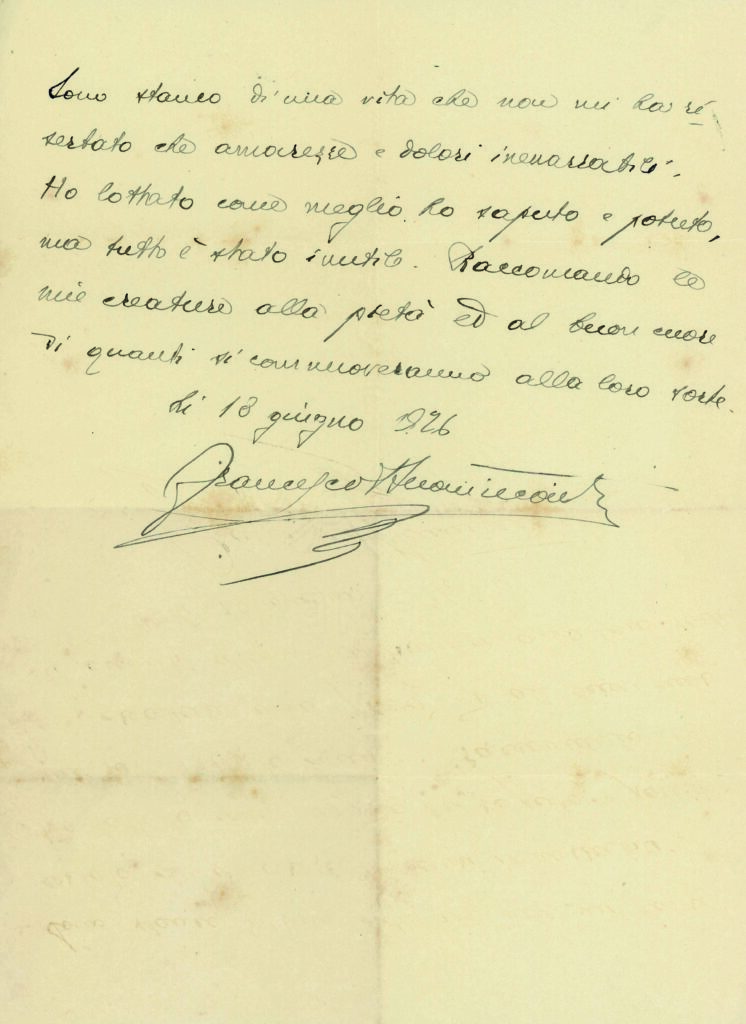 Sono stanco di una vita che non mi ha ri-
serbato che amarezze e dolori inenarrabili.
Ho lottato come meglio ho saputo e potuto,
ma tutto è stato inutile. Raccomando le
mie creature alla pietà ed al buon cuore
di quanti si commuoveranno alla loro sorte.
Li 18 giugno 926
Francesco